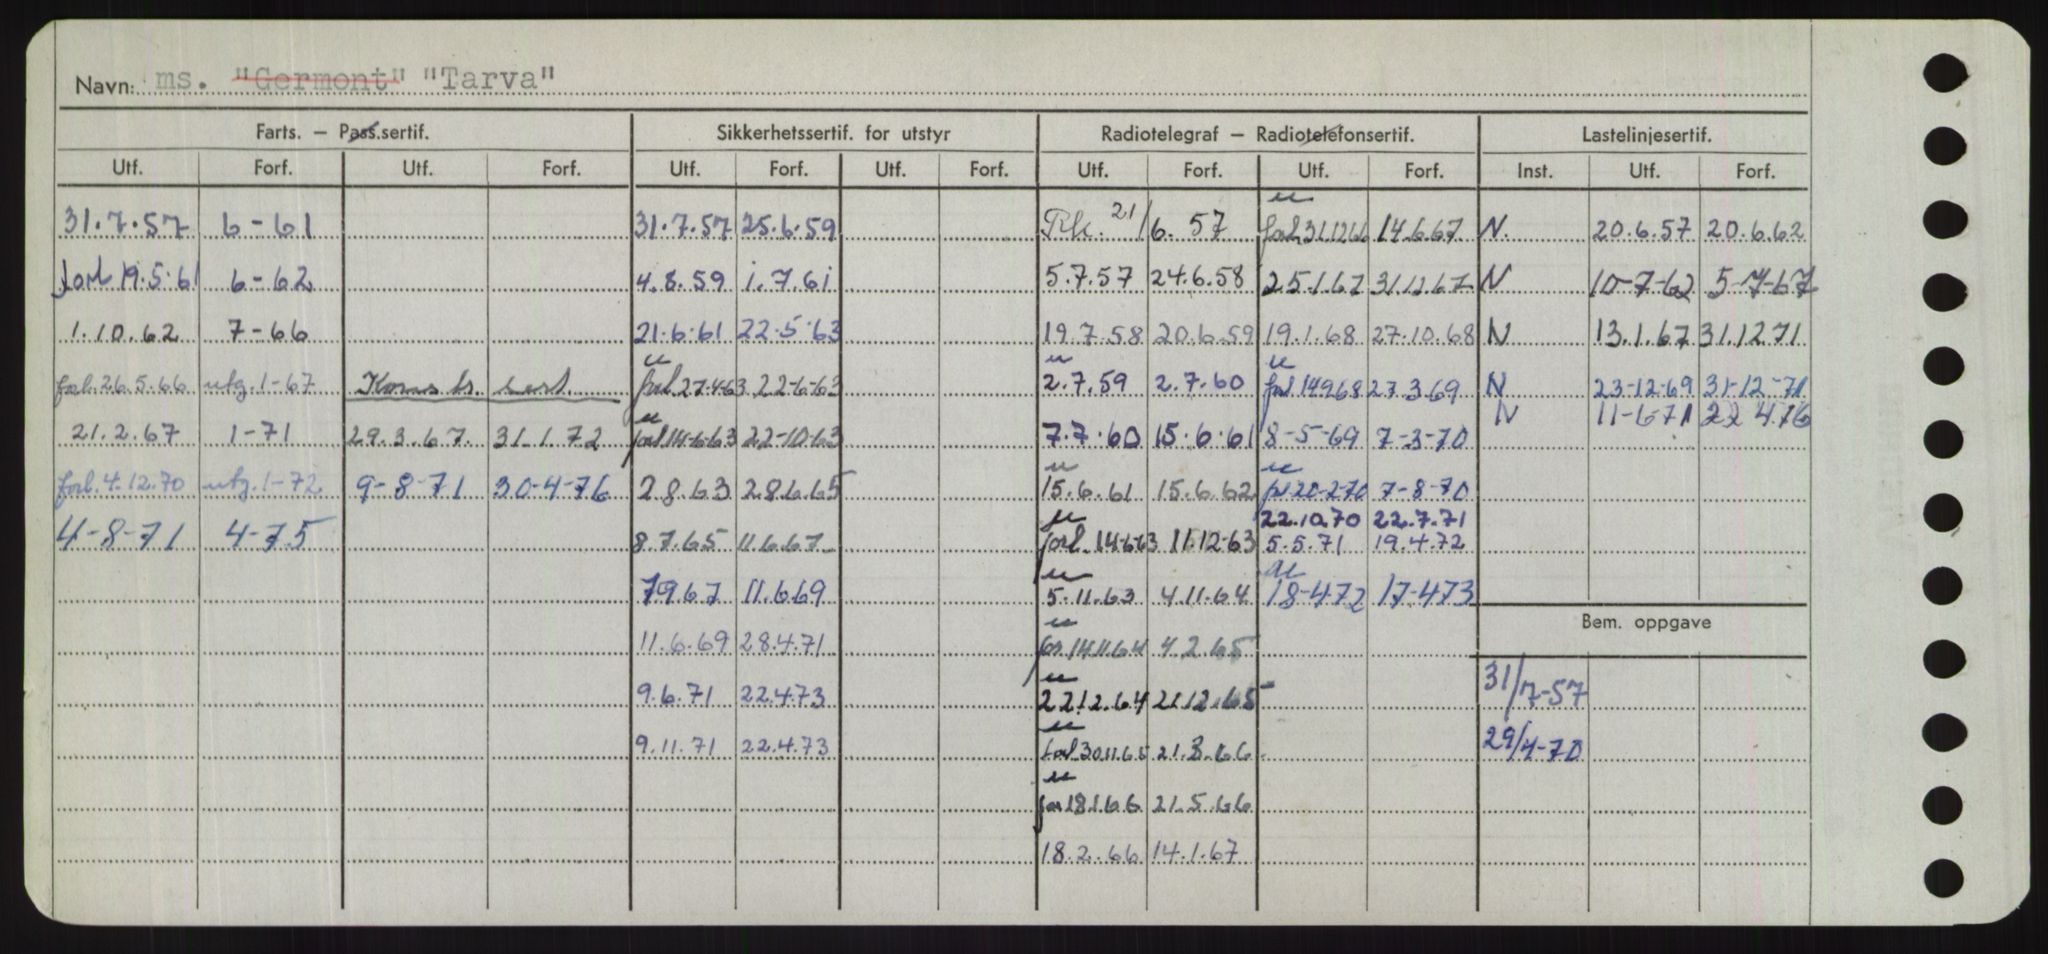 Navn: ms. "Germont" "Tarva"
Farts. – Pass.sertif. Sikkerhetssertif. for utstyr Radiotelegraf – Radiotelefonsertif. Lastelinjesertif.
Utf. Forf. Utf. Forf. Utf. Forf. Utf. Forf. Utf. Forf. Utf. Forf. Inst. Utf. Forf.
31.7.57 6-61 31.7.57 25.6.59 21/6.57 forl 31.12.66 14.6.67 N. 20.6.57 20.6.62
forl 19.5.61 6-62 4.8.59 1.7.61 5.7.57 24.6.58 25.1.67 31.12.67 N 10-7-62 5-7-67
1.10.62 7-66 21.6.61 22.5.63 19.7.58 20.6.59 19.1.68 27.10.68 N 13.1.67 31.12.71
forl. 26.5.66 utg. 1-67 Konstr. sert. forl 27.4.63 22-6-63 2.7.59 2.7.60 forl 14968 27.3.69 N 23-12-69 31-12-71
N 11-6-71 22.4.76
21.2.67 1-71 29.3.67. 31.1.72 forl 14-6-63 22-10-63 7.7.60 15.6.61 8-5-69 7-3-70
forl. 4.12.70 utg. 1-72 9-8-71 30-4-76 2.8.63 28.6.65 15.6.61 15.6.62 forl 20-2-70 7-8-70
22.10.70 22.7.71
4-8-71 4-75 8.7.65 11.6.67 forl. 14-6-63 11.12-63 5.5.71 19.4.72
7.9.67 11.6.69 5.11.63 4.11.64 18-4.72 17-4.73
Bem. oppgave
11.6.69 28.4.71 for 14.11.64 4.2.65
9.6.71 22.4.73 22.12.64 21.12.65 31/7-57
9.11.71 22.4.73 forl 30.11.65 21.3.66 29/4-70
for 18.1.66 21.5.66
18.2.66 14.1.67